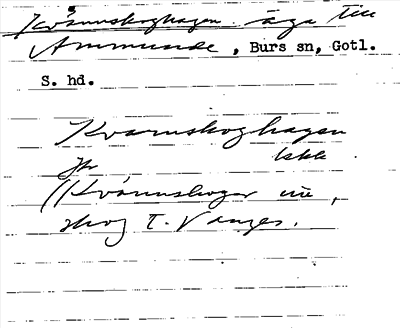 Kvännskoghagen äga till
Ammunde, Burs sn, Gotl.
S. hd.
Kvarnskoghagen
lekk
Jfr
Kvännskogar
skog t. Vanges.